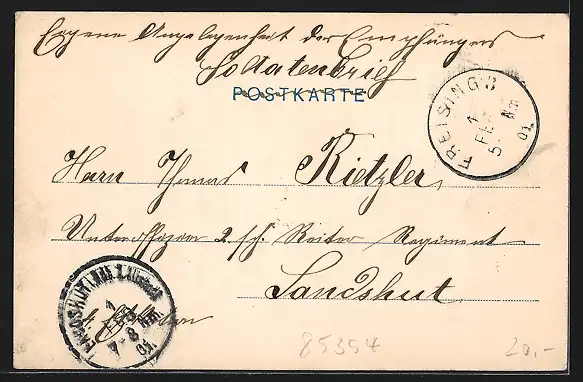 Eigene Angelegenheit des Empfängers
Soldatenbrief
POSTKARTE
FREISING
1
FEB
5
Nm
01
Herrn Thomas Rietzler
Unteroffizier 2. sch. Reiter Regiment
Landshut
LANDSHUT
1
7-8 Nm
01
85354
20,-